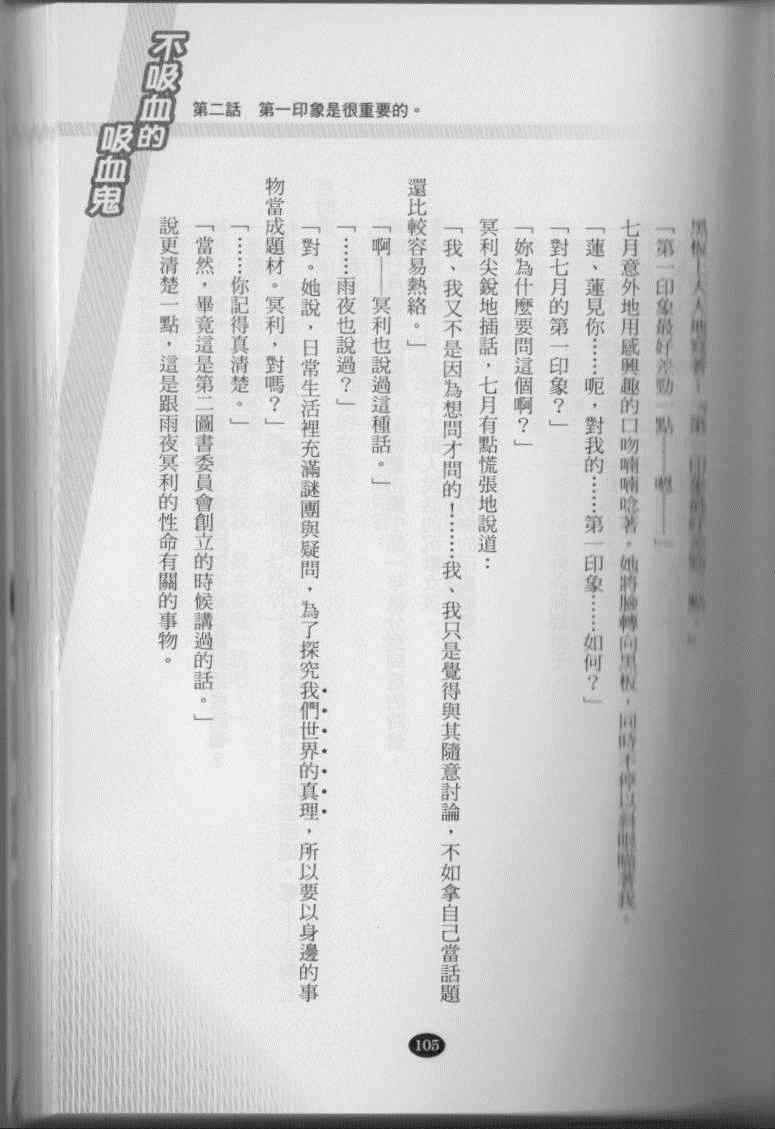 不吸血的
吸血鬼
第二話　第一印象是很重要的。
「第一印象最好差勁一點——嗯——」
七月意外地用感興趣的口吻喃喃唸著。她將臉轉向黑板，同時不停以斜眼瞄著我。
「蓮、蓮見你……呃，對我的……第一印象……如何？」
「對七月的第一印象？」
「妳為什麼要問這個啊？」
冥利尖銳地插話，七月有點慌張地說道：
「我、我又不是因為想問才問的！……我、我只是覺得與其隨意討論，不如拿自己當話題
還比較容易熱絡。」
「啊——冥利也說過這種話。」
「……雨夜也說過？」
「對。她說，日常生活裡充滿謎團與疑問，為了探究我們世界的真理，所以要以身邊的事
物當成題材。冥利，對嗎？」
「……你記得真清楚。」
「當然，畢竟這是第二圖書委員會創立的時候講過的話。」
說更清楚一點，這是跟雨夜冥利的性命有關的事物。
105